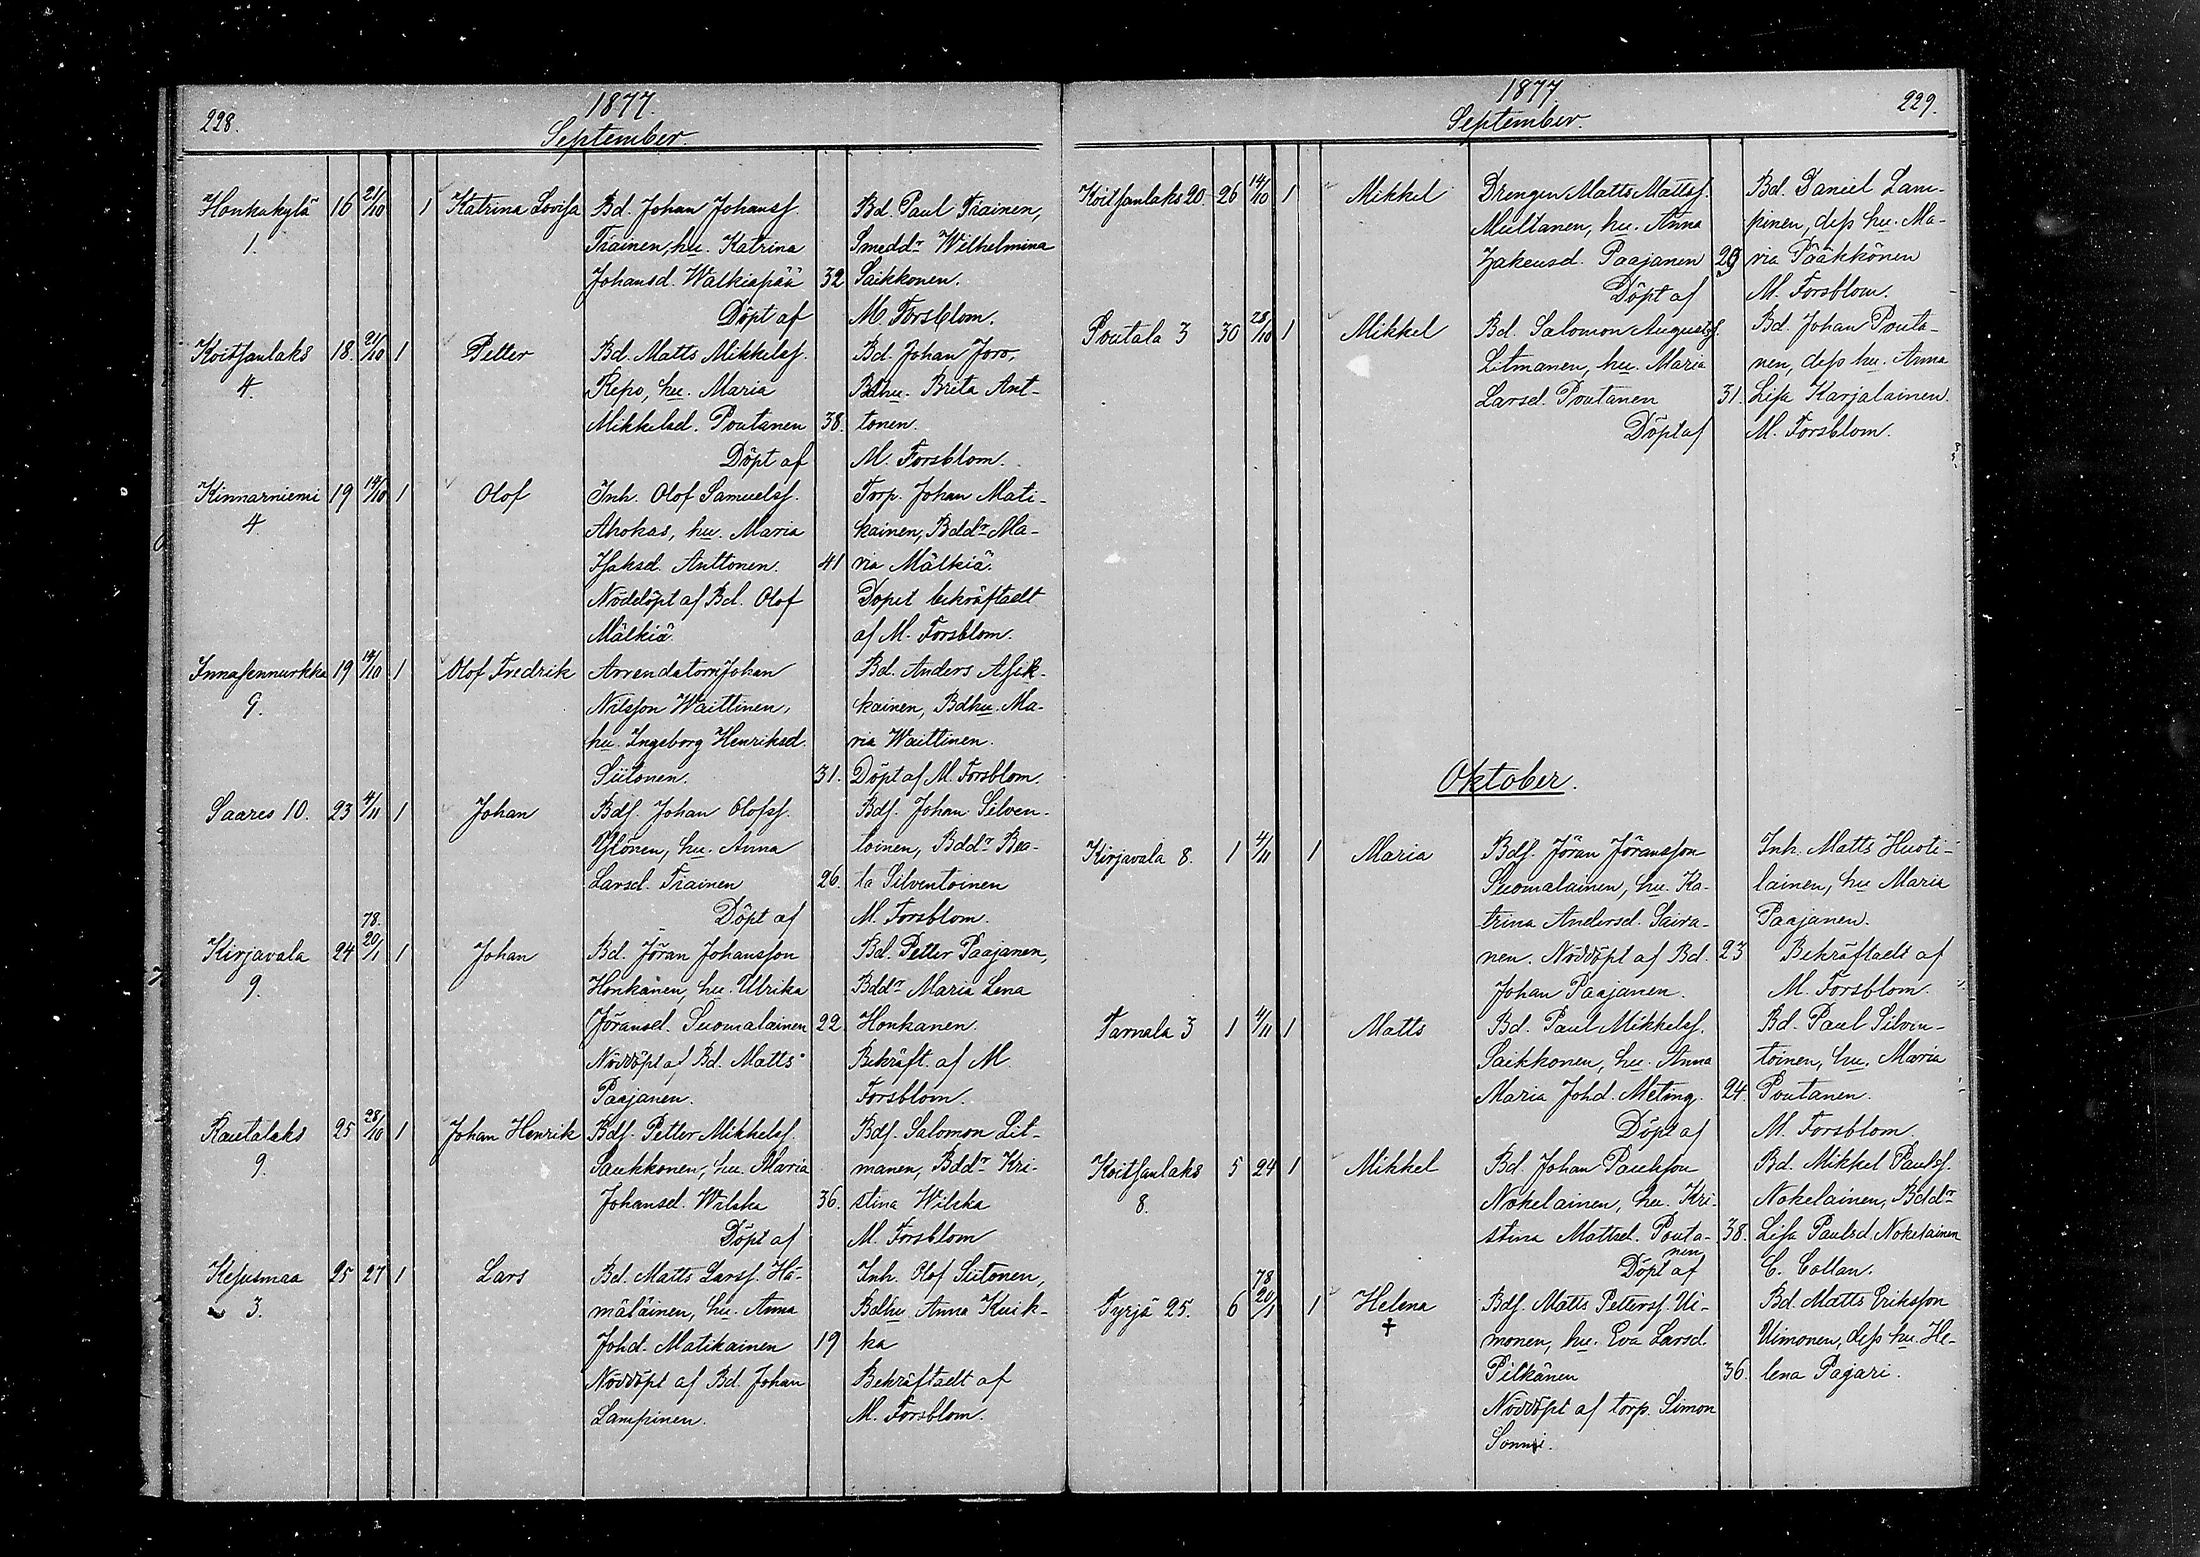 228.
1877.
September.
Honkakylä 16 21/10 1 Katrina Lovisa Bd. Johan Johansf. Bd. Paul Trainen,
1. Trainen, hu. Katrina Smeddr Wilhelmina
Johansd. Walkiapää 32 Saikkonen.
Döpt af M. Forsblom.
Koitsanlaks 18. 21/10 1 Petter Bd. Matts Mikkelsf. Bd. Johan Joro,
4. Repo, hu. Maria Bdhu. Brita Ant-
Mikkelsd. Poutanen 38. tonen.
Döpt af M. Forsblom.
Kinnarniemi 19 14/10 1 Olof Inh. Olof Samuelsf. Torp. Johan Mati-
4. Ahokas, hu. Maria kainen, Bddr Ma-
Isaksd. Anttonen. 41 ria Mälkiä.
Nöddöpt af Bd. Olof Dopet bekräftadt
Mälkiä. af M. Forsblom.
Innasennurkka 19 14/10 1 Olof Fredrik Arrendatorn Johan Bd. Anders Asik-
9. Nilsson Waittinen, kainen, Bdhu. Ma-
hu. Ingeborg Henriksd. ria Waittinen.
Siitonen. 31. Döpt af M. Forsblom.
Saares 10. 23 4/11 1 Johan Bdf. Johan Olofsf. Bdf. Johan Silven-
Ylönen, hu. Anna toinen, Bddr Bea-
Larsd. Trainen 26. ta Silventoinen
Döpt af M. Forsblom.
78.
Kirjavala 24 20/1 1 Johan Bd. Jöran Johansson Bd. Petter Paajanen,
9. Honkanen, hu. Ulrika Bddr Maria Lena
Jöransd. Suomalainen 22. Honkanen.
Nöddöpt af Bd. Matts Bekräft. af M.
Paajanen. Forsblom.
Rautalaks 25 28/10 1 Johan Henrik Bdf. Petter Mikkelsf. Bdf. Salomon Lit-
9. Paukkonen, hu. Maria manen, Bddr Kri-
Johansd. Wilska 36. stina Wilska
Döpt af M. Forsblom
Kesusmaa 25 27 1 Lars Bd. Matts Larsf. Hä- Inh. Olof Siitonen,
3. mäläinen, hu. Anna Bdhu Anna Kuik-
Johd. Matikainen 19 ka
Nöddöpt af Bd. Johan Bekräftadt af
Lampinen. M. Forsblom.
1877
229.
September.
Koitsanlaks 20. 26 14/10 1 Mikkel Drengen Matts Mattsf. Bd. Daniel Lam-
Multanen, hu. Anna pinen, dess hu. Ma-
Zakeusd. Paajanen 29 ria Pääkkönen
Döpt af M. Forsblom.
Poutala 3 30 28/10 1 Mikkel Bd. Salomon Augustsf. Bd. Johan Pouta-
Litmanen, hu. Maria nen, dess hu. Anna
Larsd. Poutanen 31. Lisa Karjalainen.
Döpt af M. Forsblom.
Oktober.
Kirjavala 8. 1 4/11 1 Maria Bdf. Jöran Jöransson Inh. Matts Huoti-
Suomalainen, hu. Ka- lainen, hu Maria
trina Andersd. Saira- Paajanen.
nen. Nöddöpt af Bd. 23 Bekräftadt af
Johan Paajanen. M. Forsblom.
Tarnala 3 1 4/11 1 Matts Bd. Paul Mikkelsf. Bd. Paul Silven-
Saikkonen, hu. Anna toinen, hu. Maria
Maria Johd. Meting. 24. Poutanen.
Döpt af M. Forsblom.
Koitsanlaks 5 24 1 Mikkel Bd. Johan Paulsson Bd. Mikkel Paulsf.
8. Nokelainen, hu. Kri- Nokelainen, Bddr
stina Mattsd. Pouta- 38. Lisa Paulsd. Nokelainen
nen
Döpt af C. Collan.
78
Tyrjä 25. 6 20/1 1 Helena Bdf. Matts Pettersf. Ui- Bd. Matts Eriksson
† monen, hu. Eva Larsd. Uimonen, dess hu. He-
Pilkänen 36. lena Pagari.
Nöddöpt af torp. Simon
Sonni.